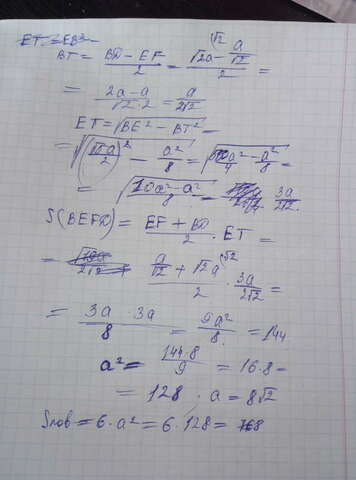 BT = (BD - EF)/2 = (√2a - a/√2)/2 =
= (2a - a)/(√2·2) = a/(2√2)
ET = √(BE² - BT²) =
= √((√5a/2)² - a²/8) = √(5a²/4 - a²/8) =
= √((10a² - a²)/8) = 3a/(2√2).
S(BEFD) = (EF + BD)/2 · ET =
= (a/√2 + √2a)/2 · 3a/(2√2) =
= (3a · 3a)/8 = 9a²/8 = 144
a² = (144·8)/9 = 16·8 =
= 128, a = 8√2
Sпов = 6·a² = 6·128 = 768